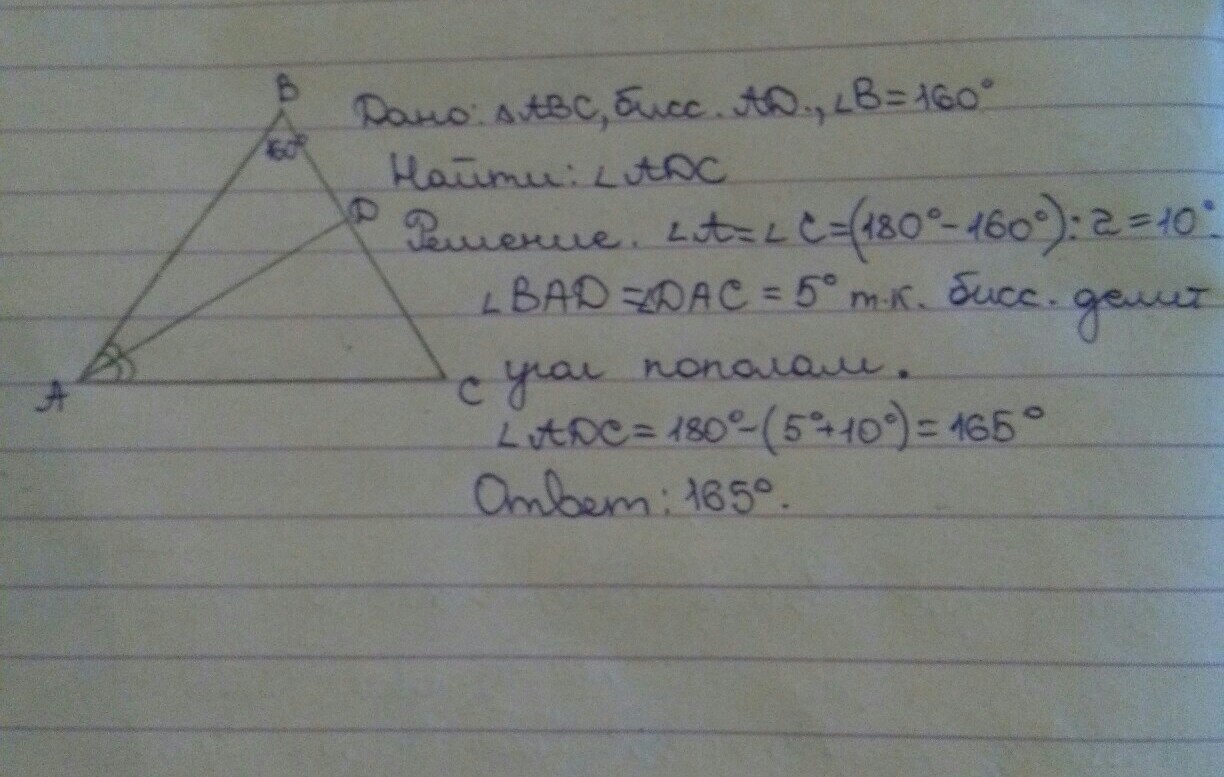 B
Дано: △ABC, бисс. AD., ∠B=160°
160°
Найти: ∠ADC
D
Решение. ∠A=∠C=(180°-160°):2=10°.
∠BAD=∠DAC=5° т.к. бисс. делит
A
C
угол пополам.
∠ADC=180°-(5°+10°)=165°
Ответ: 165°.